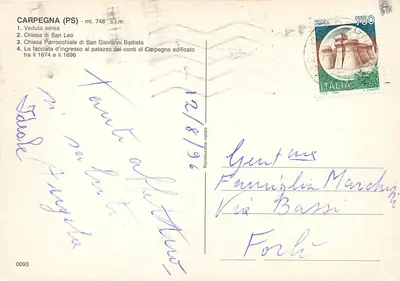 CARPEGNA (PS) - mt. 748 s.l.m.
1. Veduta aerea
2. Chiesa di San Leo
3. Chiesa Parrocchiale di San Giovanni Battista
4. La facciata d'ingresso al palazzo dei conti di Carpegna edificato
tra il 1674 e il 1696
12/8/96
Tanti affettuosi
saluti
Angela
Riproduzione vietata
750
ITALIA
Gent.me
Famiglia
Via Bassi
Forlì
0093